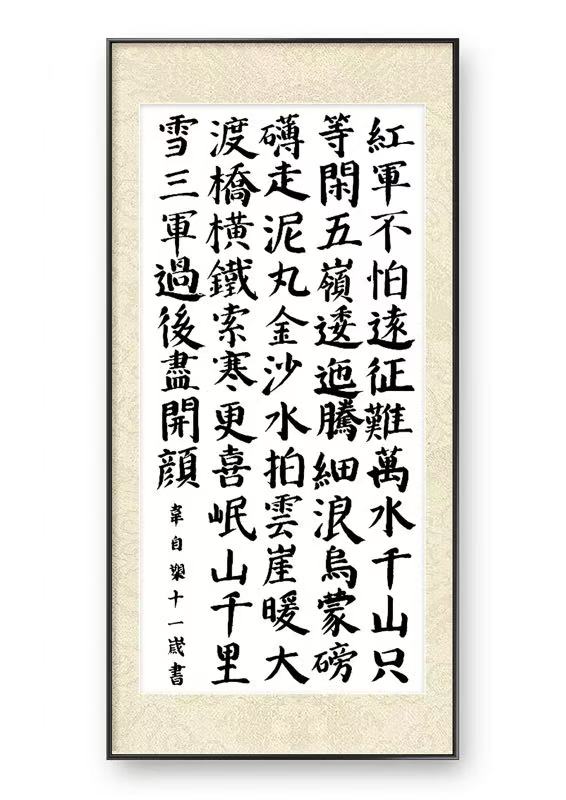 紅軍不怕遠征難萬水千山只
等閑五嶺逶迤騰細浪烏蒙磅
礴走泥丸金沙水拍雲崖暖大
渡橋橫鐵索寒更喜岷山千里
雪三軍過後盡開顏
韋自十一歲書